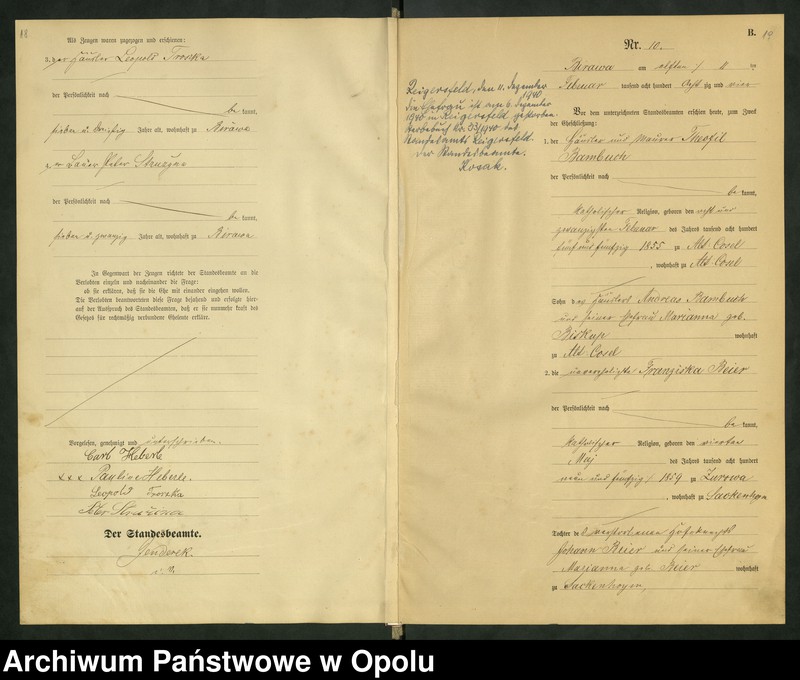 18
Als Zeugen waren zugezogen und erschienen:
3. der Häusler Leopold Troska
der Persönlichkeit nach
be kannt,
sieben u. dreißig Jahre alt, wohnhaft zu Birawa
4. der Bauer Peter
der Persönlichkeit nach
be kannt,
sieben u. zwanzig Jahre alt, wohnhaft zu Birawa
In Gegenwart der Zeugen richtete der Standesbeamte an die
Verlobten einzeln und nacheinander die Frage:
ob sie erklären, daß sie die Ehe mit einander eingehen wollen.
Die Verlobten beantworteten diese Frage bejahend und erfolgte hier-
auf der Ausspruch des Standesbeamten, daß er sie nunmehr kraft des
Gesetzes für rechtmäßig verbundene Eheleute erkläre.
Vorgelesen, genehmigt und unterschrieben.
Carl Heberle
xxx Pauline Heberle.
Leopold Troska
Peter
Der Standesbeamte.
Genderek.
B.
19
Nr. 10.
Birawa am elften / 11 ten
Februar tausend acht hundert acht zig und vier
Reigersfeld, den 11. Dezember
1940
Die Ehefrau ist am 9. Dezember
1940 in Reigersfeld gestorben
Sterbebuch No. 53/1940 des
Standesamts Reigersfeld.
Der Standesbeamte.
Kosak.
Vor dem unterzeichneten Standesbeamten erschien heute, zum Zweck
der Eheschließung:
1. der Häusler und Maurer Teofil
Bambuch
der Persönlichkeit nach
be kannt,
katholischer Religion, geboren den acht und
zwanzigsten Februar des Jahres tausend acht hundert
fünf und fünfzig 1855 zu Alt Cosel
, wohnhaft zu Alt Cosel
Sohn des Häuslers Andreas Bambuch
und seiner Ehefrau Marianna geb.
Biskup wohnhaft
zu Alt Cosel
2. die unverehelichte Franziska Beier
der Persönlichkeit nach
be kannt,
katholischer Religion, geboren den vierten
Mai des Jahres tausend acht hundert
neun und fünfzig / 1859 zu Zurowa
, wohnhaft zu Sackenhoym
Tochter des verstorbenen
Johann Beier und seiner Ehefrau
Marianna geb. Beier wohnhaft
zu Sackenhoym,
Archiwum Państwowe w Opolu